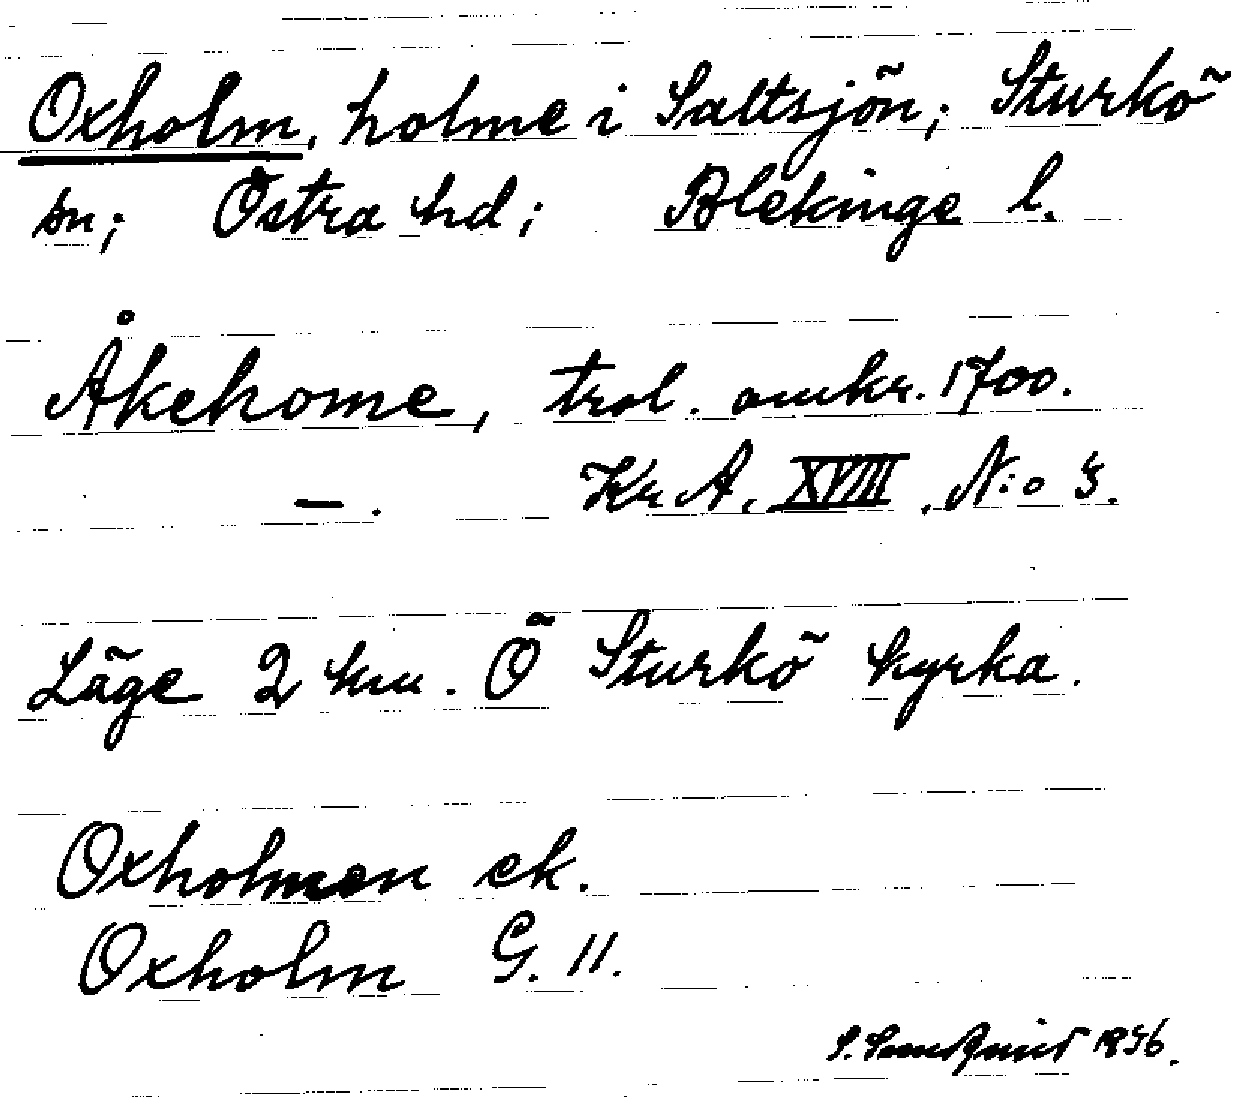 Oxholm, holme i Saltsjön; Sturkö
sn; Östra hd; Blekinge l.
Åkehome, trol. omkr. 1700.
—. Kr A. XVIII. N:o 5.
Läge 2 km. Ö Sturkö kyrka.
Oxholmen ek.
Oxholm G. 11.
S. 1956.